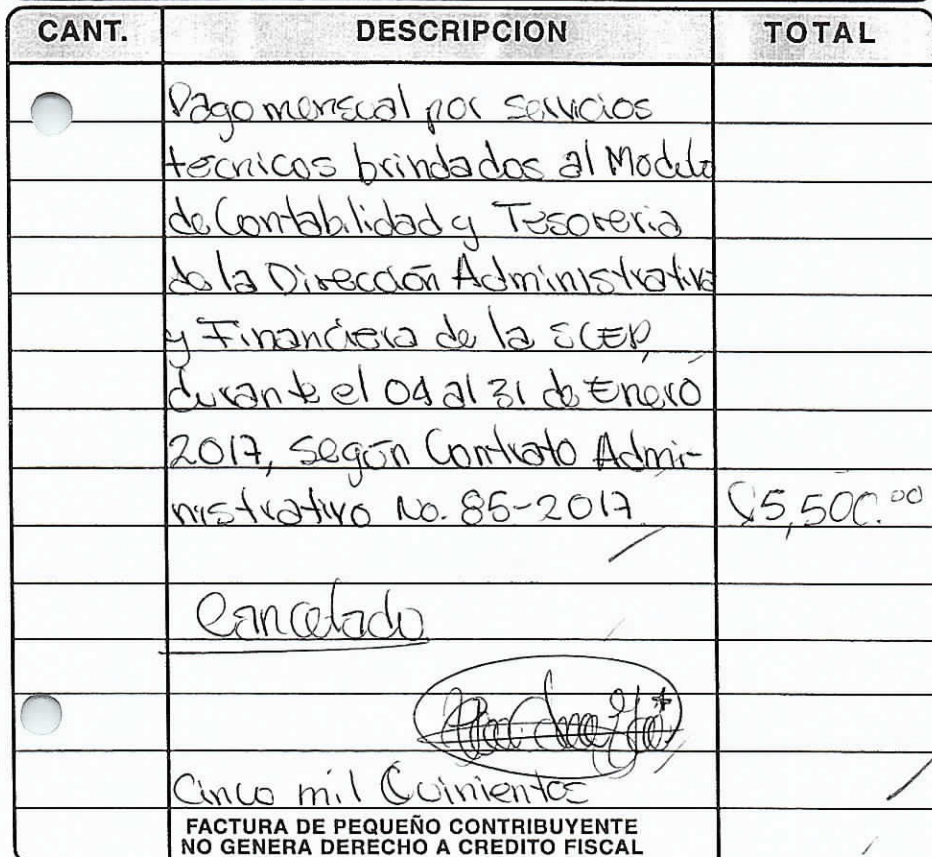 CANT. DESCRIPCION TOTAL
Pago mensual por servicios
tecnicos brindados al Modulo
de Contabilidad y Tesoreria
de la Dirección Administrativa
y Financiera de la SCEP,
durante el 04 al 31 de Enero
2017, según Contrato Admi-
nistrativo No. 85-2017 Q5,500.00
Cancelado
Cinco mil Quinientos
FACTURA DE PEQUEÑO CONTRIBUYENTE
NO GENERA DERECHO A CREDITO FISCAL